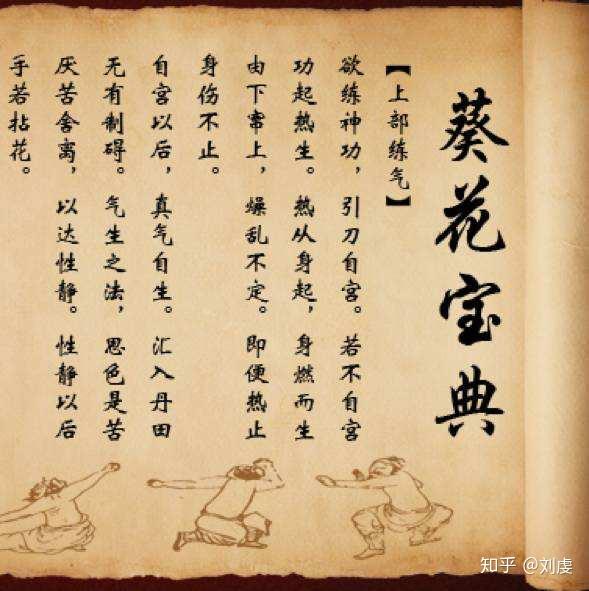 葵花宝典
【上部练气】
欲练神功，引刀自宫。若不自宫
功起热生。热从身起，身燃而生
由下窜上，燥乱不定。即便热止
身伤不止。
自宫以后，真气自生。汇入丹田
无有制碍。气生之法，思色是苦
厌苦舍离，以达性静。性静以后
手若拈花。
知乎 @刘虔